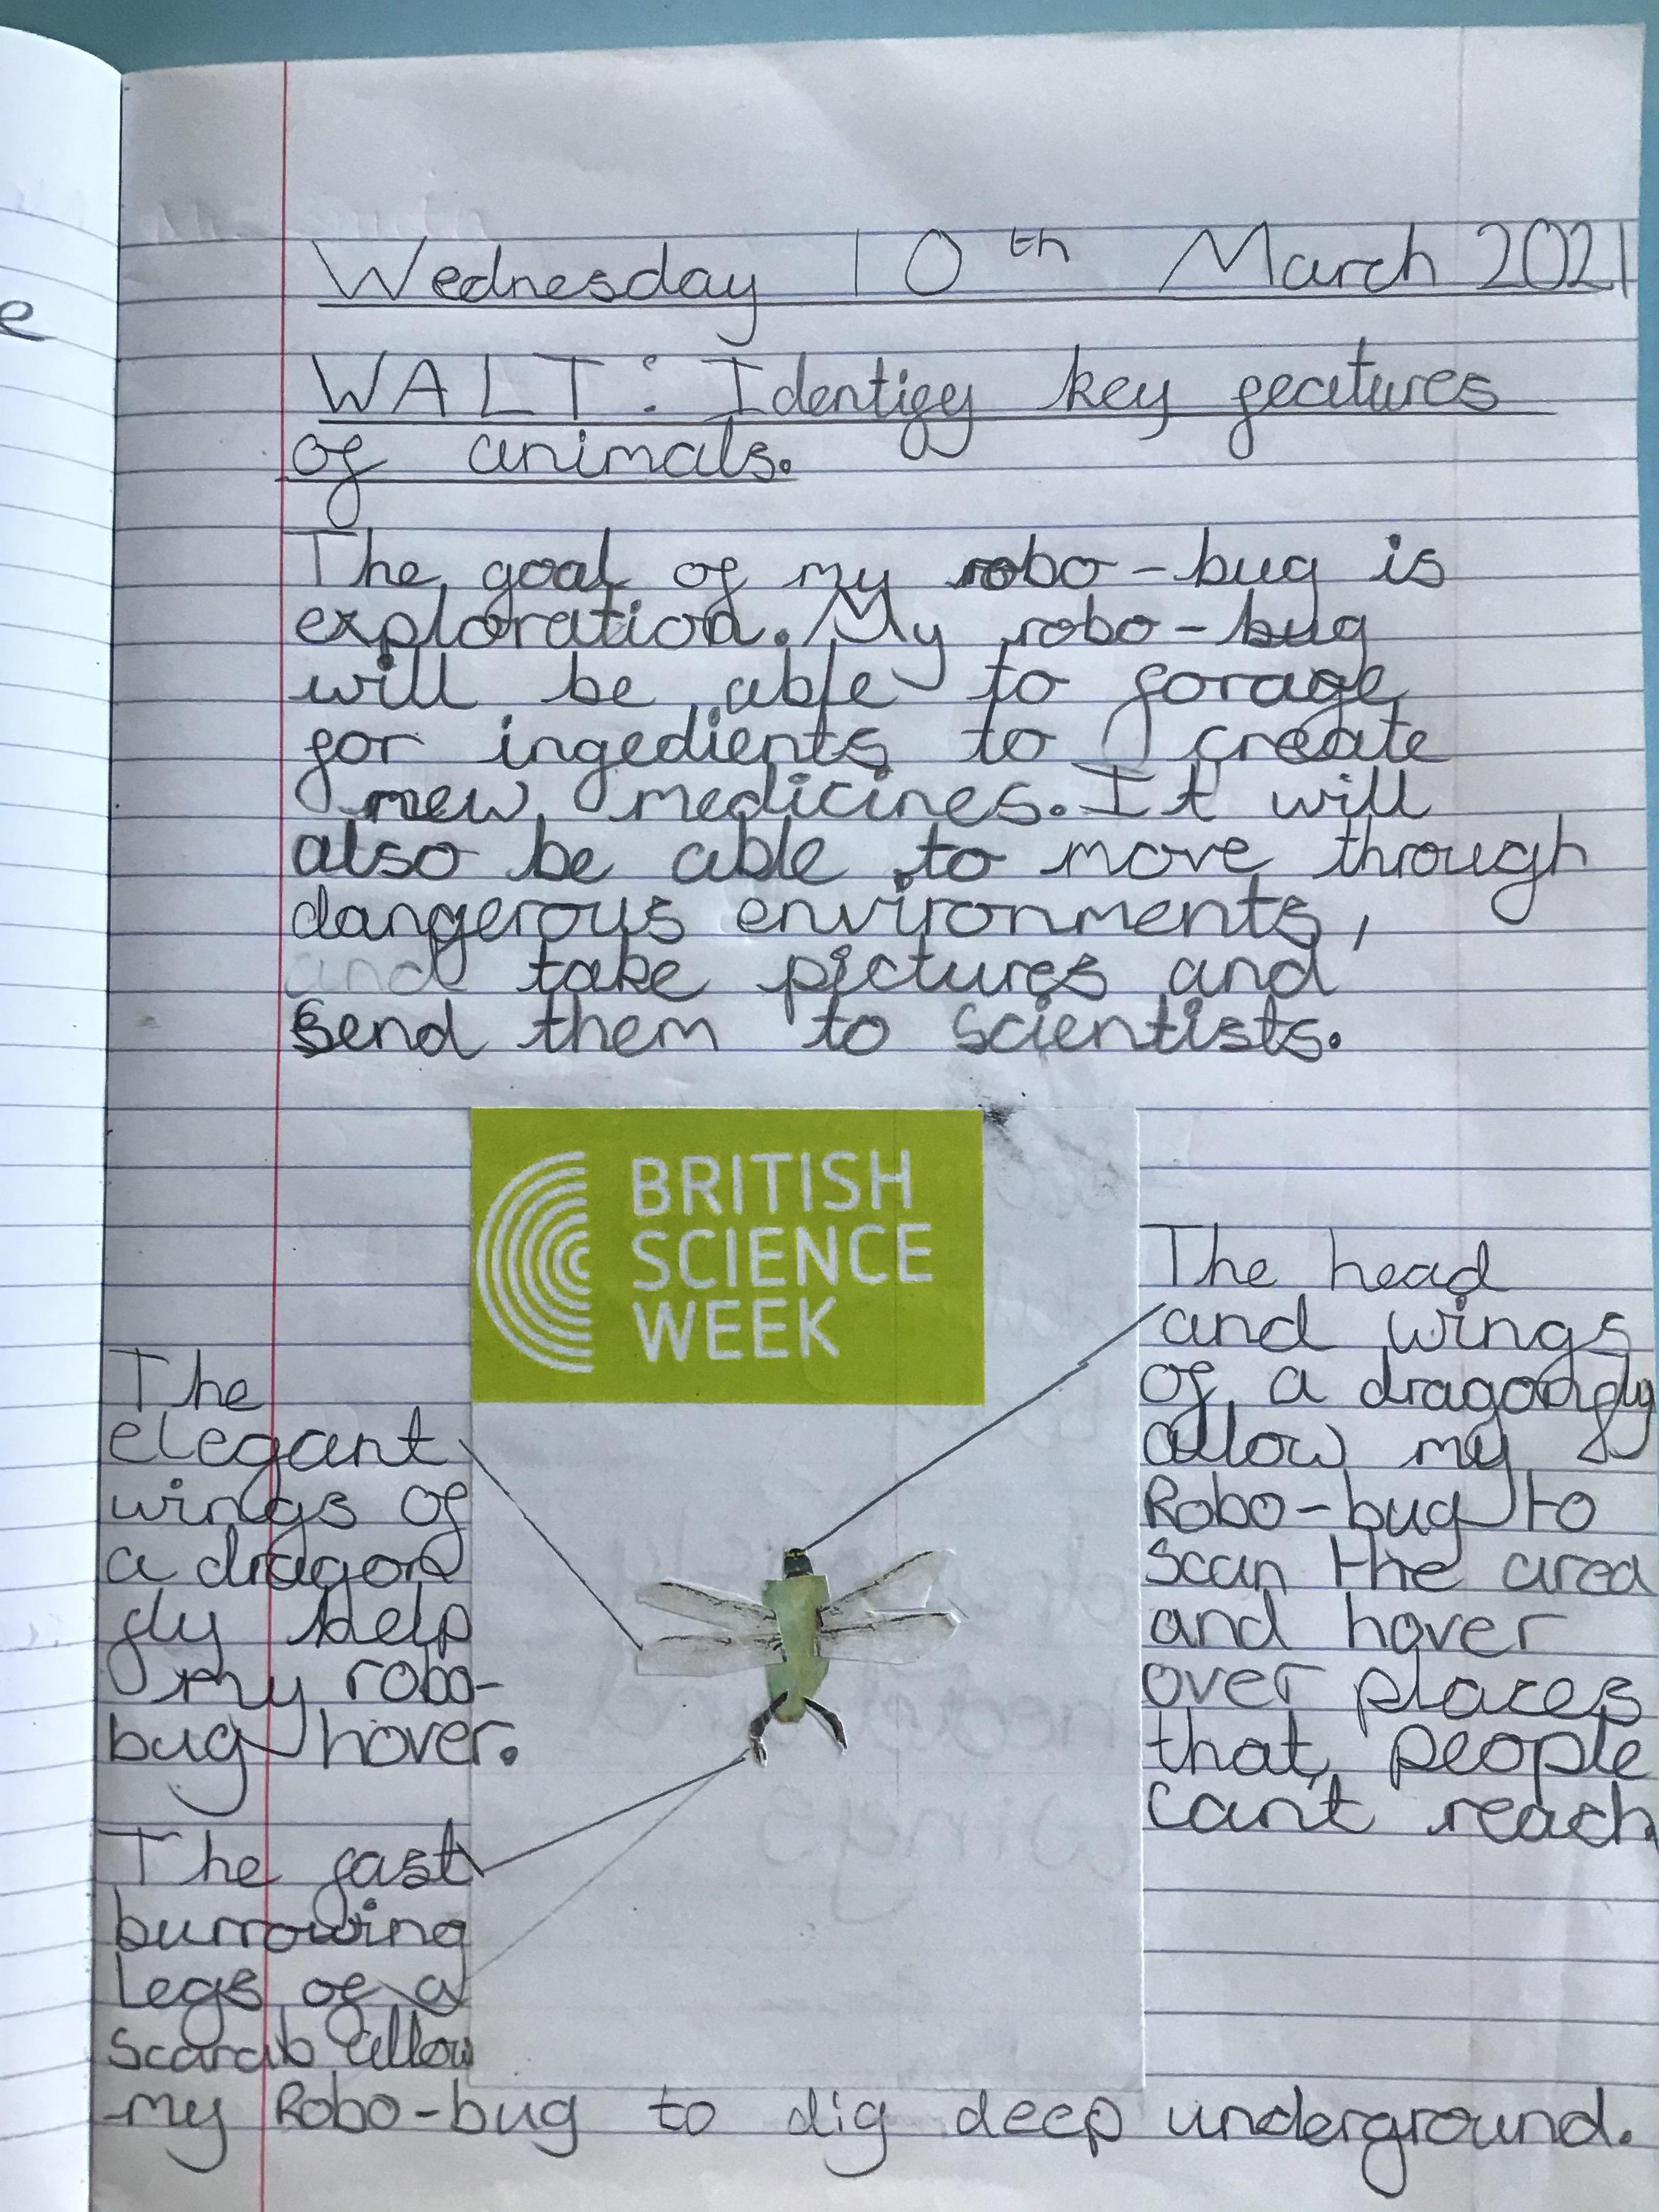 e
Wednesday 10th March 2021
WALT: Identify key features
of animals.
The goal of my robo-bug is
exploration. My robo-bug
will be able to forage
for ingedients to create
new medicines. It will
also be able to move through
dangerous environments,
and take pictures and
send them to scientists.
BRITISH
SCIENCE
WEEK
The
elegant
wings of
a dragon
fly help
my robo-
bug hover.
The head
and wings
of a dragongly
allow my
Robo-bug to
scan the area
and hover
over places
that people
cant reach.
The fast
burrowing
legs of a
scarab allow
my Robo-bug to dig deep underground.